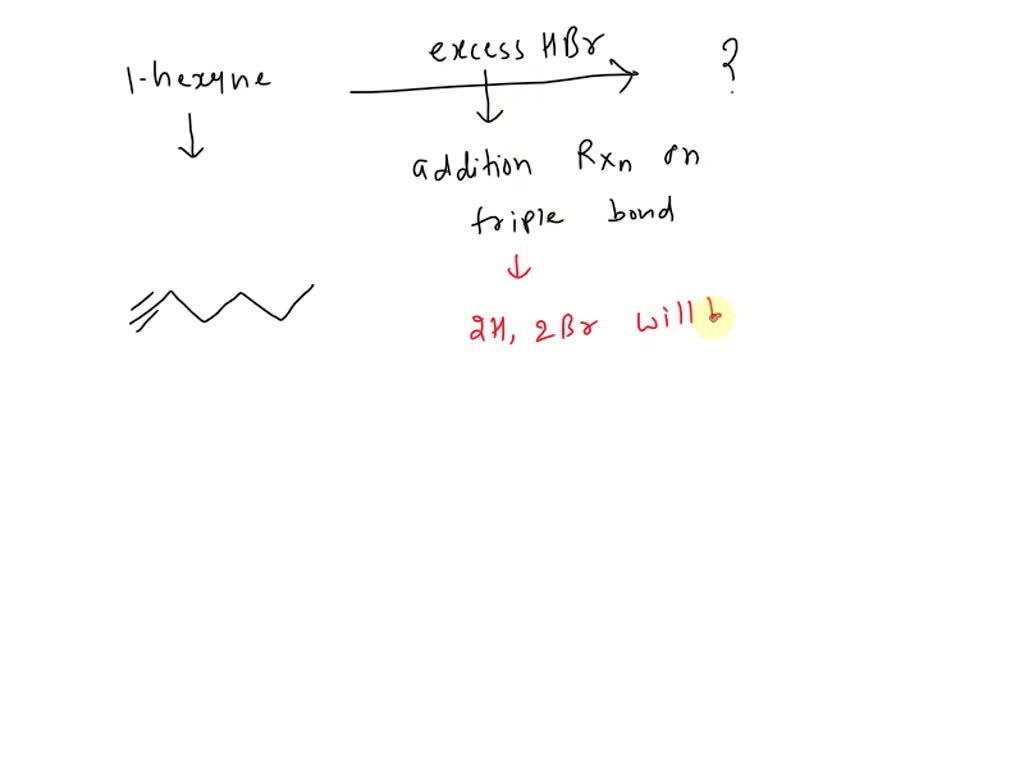 1-hexyne
excess HBr
?
addition Rxn on
triple bond
2H, 2Br will b